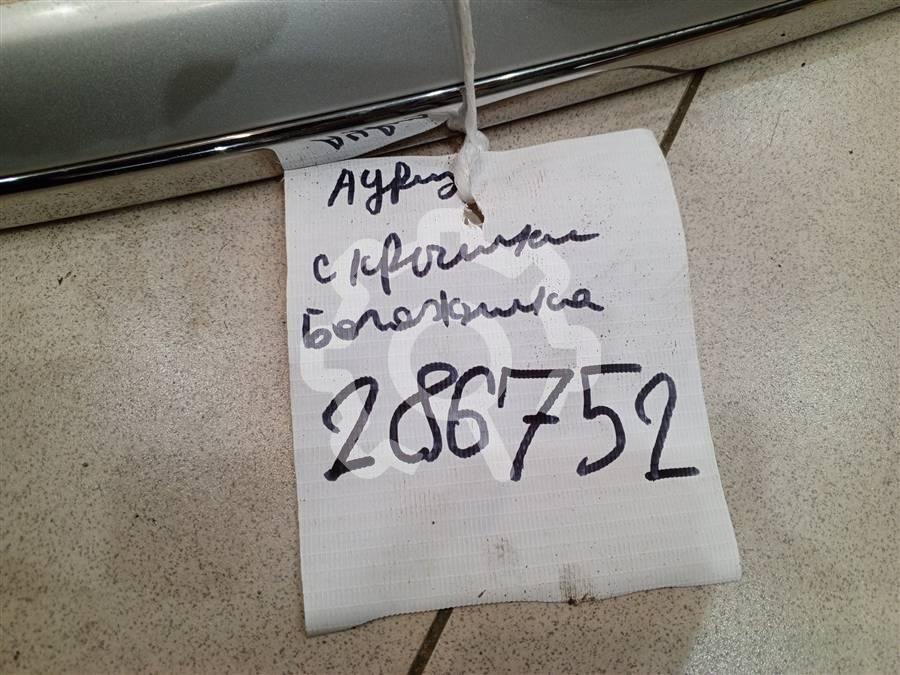 Аурис
с крышки
Багажника
286752